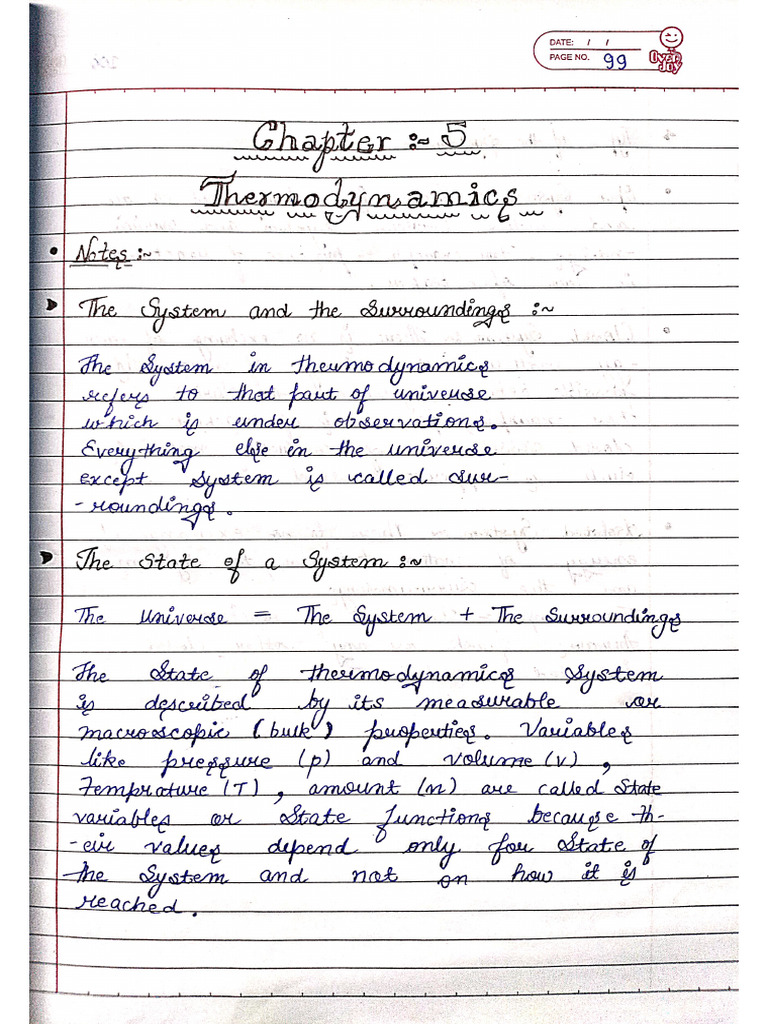 DATE: / /
PAGE NO. 99
Over Joy
Chapter :~ 5
Thermodynamics
• Notes :~
The System and the Surroundings :~
The System in thermodynamics
refers to that part of universe
which is under observations.
Everything else in the universe
except system is called sur-
-roundings.
The State of a System :~
The Universe = The System + The Surroundings
The State of thermodynamics System
is described by its measurable or
macroscopic (bulk) properties. Variables
like pressure (p) and volume (v) ,
Temprature (T) , amount (n) are called State
variables or State functions because th-
-eir values depend only for State of
the System and not on how it is
reached.